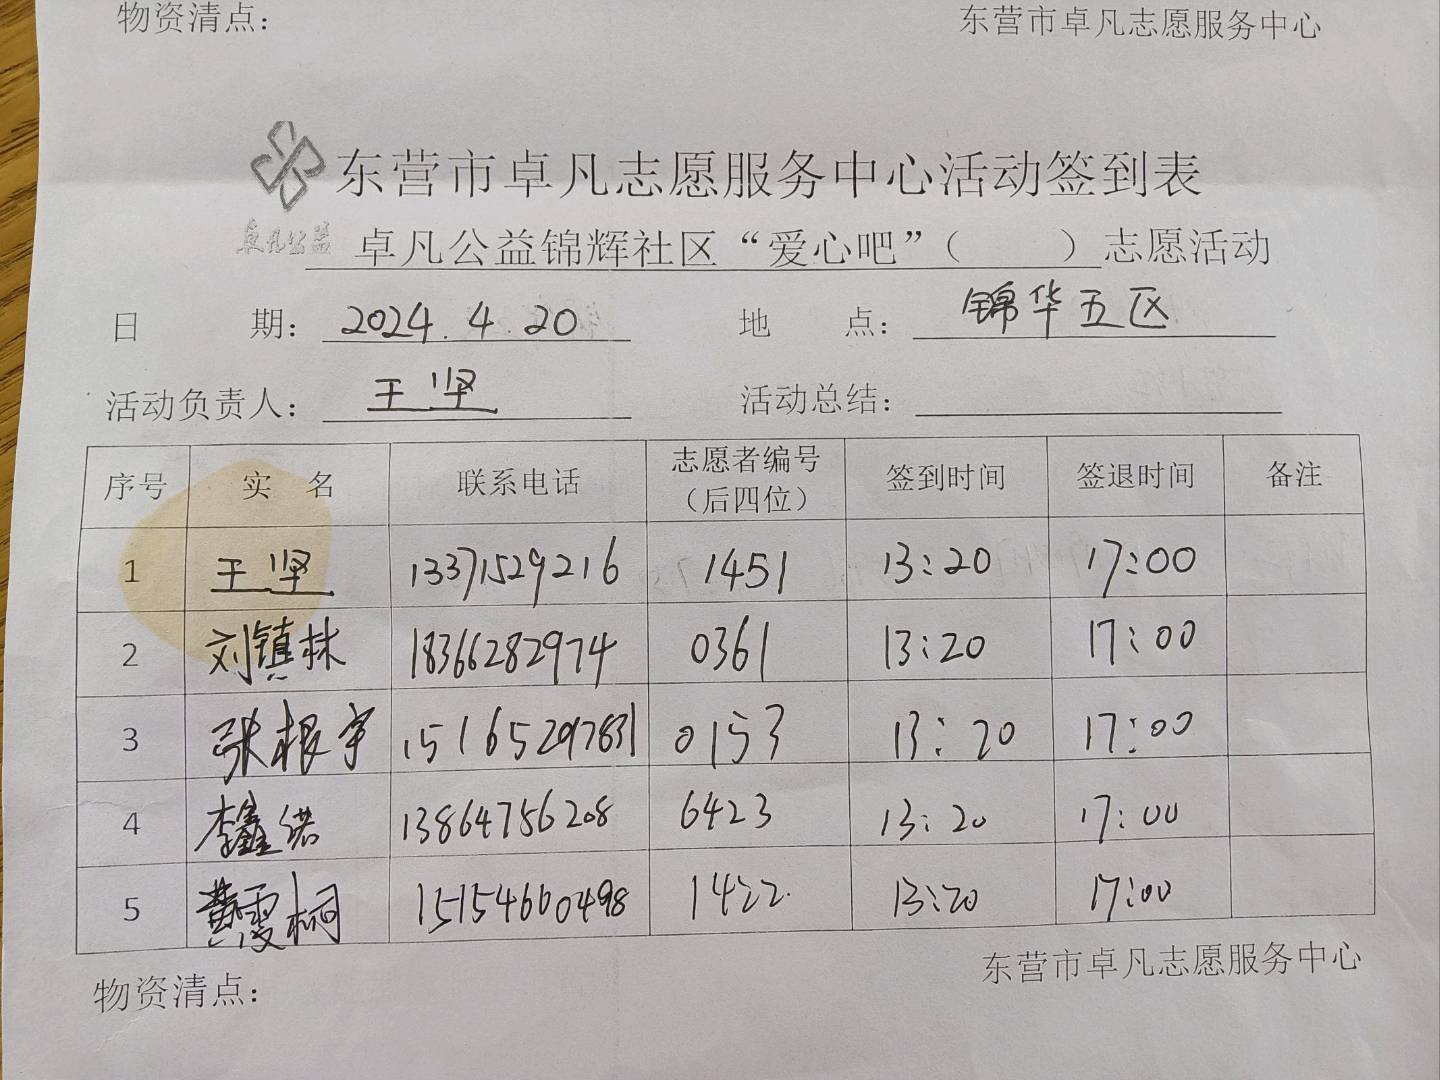 物资清点： 东营市卓凡志愿服务中心
东营市卓凡志愿服务中心活动签到表
卓凡公益
卓凡公益锦辉社区“爱心吧”（ ）志愿活动
日 期： 2024.4.20 地 点： 锦华五区
活动负责人： 王坚 活动总结：
序号 实 名 联系电话 志愿者编号（后四位） 签到时间 签退时间 备注
1 王坚 13371529216 1451 13:20 17:00
2 刘镇林 18366282974 0361 13:20 17:00
3 张根宇 15165297831 0153 13:20 17:00
4 李鑫诺 13864756208 6423 13:20 17:00
5 黄雯桐 15154660498 1422 13:20 17:00
物资清点： 东营市卓凡志愿服务中心